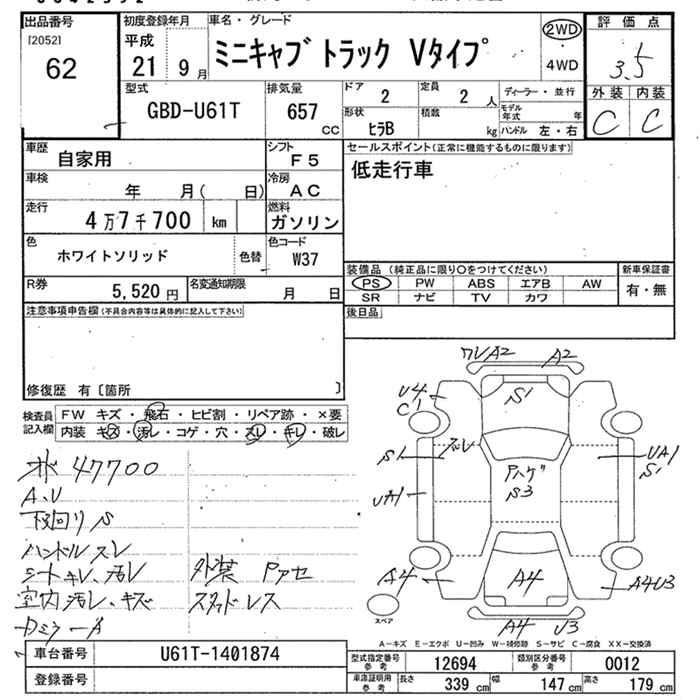 出品番号 初度登録年月 車名・グレード 評価点
[2052] 平成 ミニキャブ トラック Vタイプ 2WD 3.5
62 21 9月 ・ 4WD
外装 内装
型式 排気量 ドア 定員 ディーラー・並行
GBD-U61T 657 CC 2 2 人 C C
形状 積載 モデル年式 年
ヒラB kg ハンドル 左・右
車歴 自家用 シフト F5 セールスポイント(正常に機能するものに限ります)
車検 年 月( 日) 冷房 AC 低走行車
走行 4万7千700 km 燃料 ガソリン
色 ホワイトソリッド 色替 色コード W37
装備品 (純正品に限り〇をつけてください) 新車保証書
R券 5,520 円 名変通知期限 月 日 PS PW ABS エアB AW 有・無
SR ナビ TV カワ
注意事項申告欄(不具合内容等は具体的に記入して下さい) 後日品
修復歴 有〔箇所 〕
検査員記入欄 FW キズ・飛石・ヒビ割・リペア跡・×要
内装 キズ・汚レ・コゲ・穴・スレ・キレ・破レ
47700
A、U
下回りS
ハンドルスレ
シートキレ、汚レ 外装 Pアセ
室内汚レ、キズ スタッドレス
ワレA2 A2
U4 S1
C1
S1 スレ Pハゲ UA1
S3 S1
UA1
A4 A4 A4U3
スペア A4 U3
A-キズ E-エクボ U-凹み W-補修跡 S-サビ C-腐食 XX-交換済
車台番号 U61T-1401874 型式指定番号 参考 12694 類別区分番号 参考 0012
登録番号 車庫証明用 参考 長さ 339 cm 幅 147 cm 高さ 179 cm